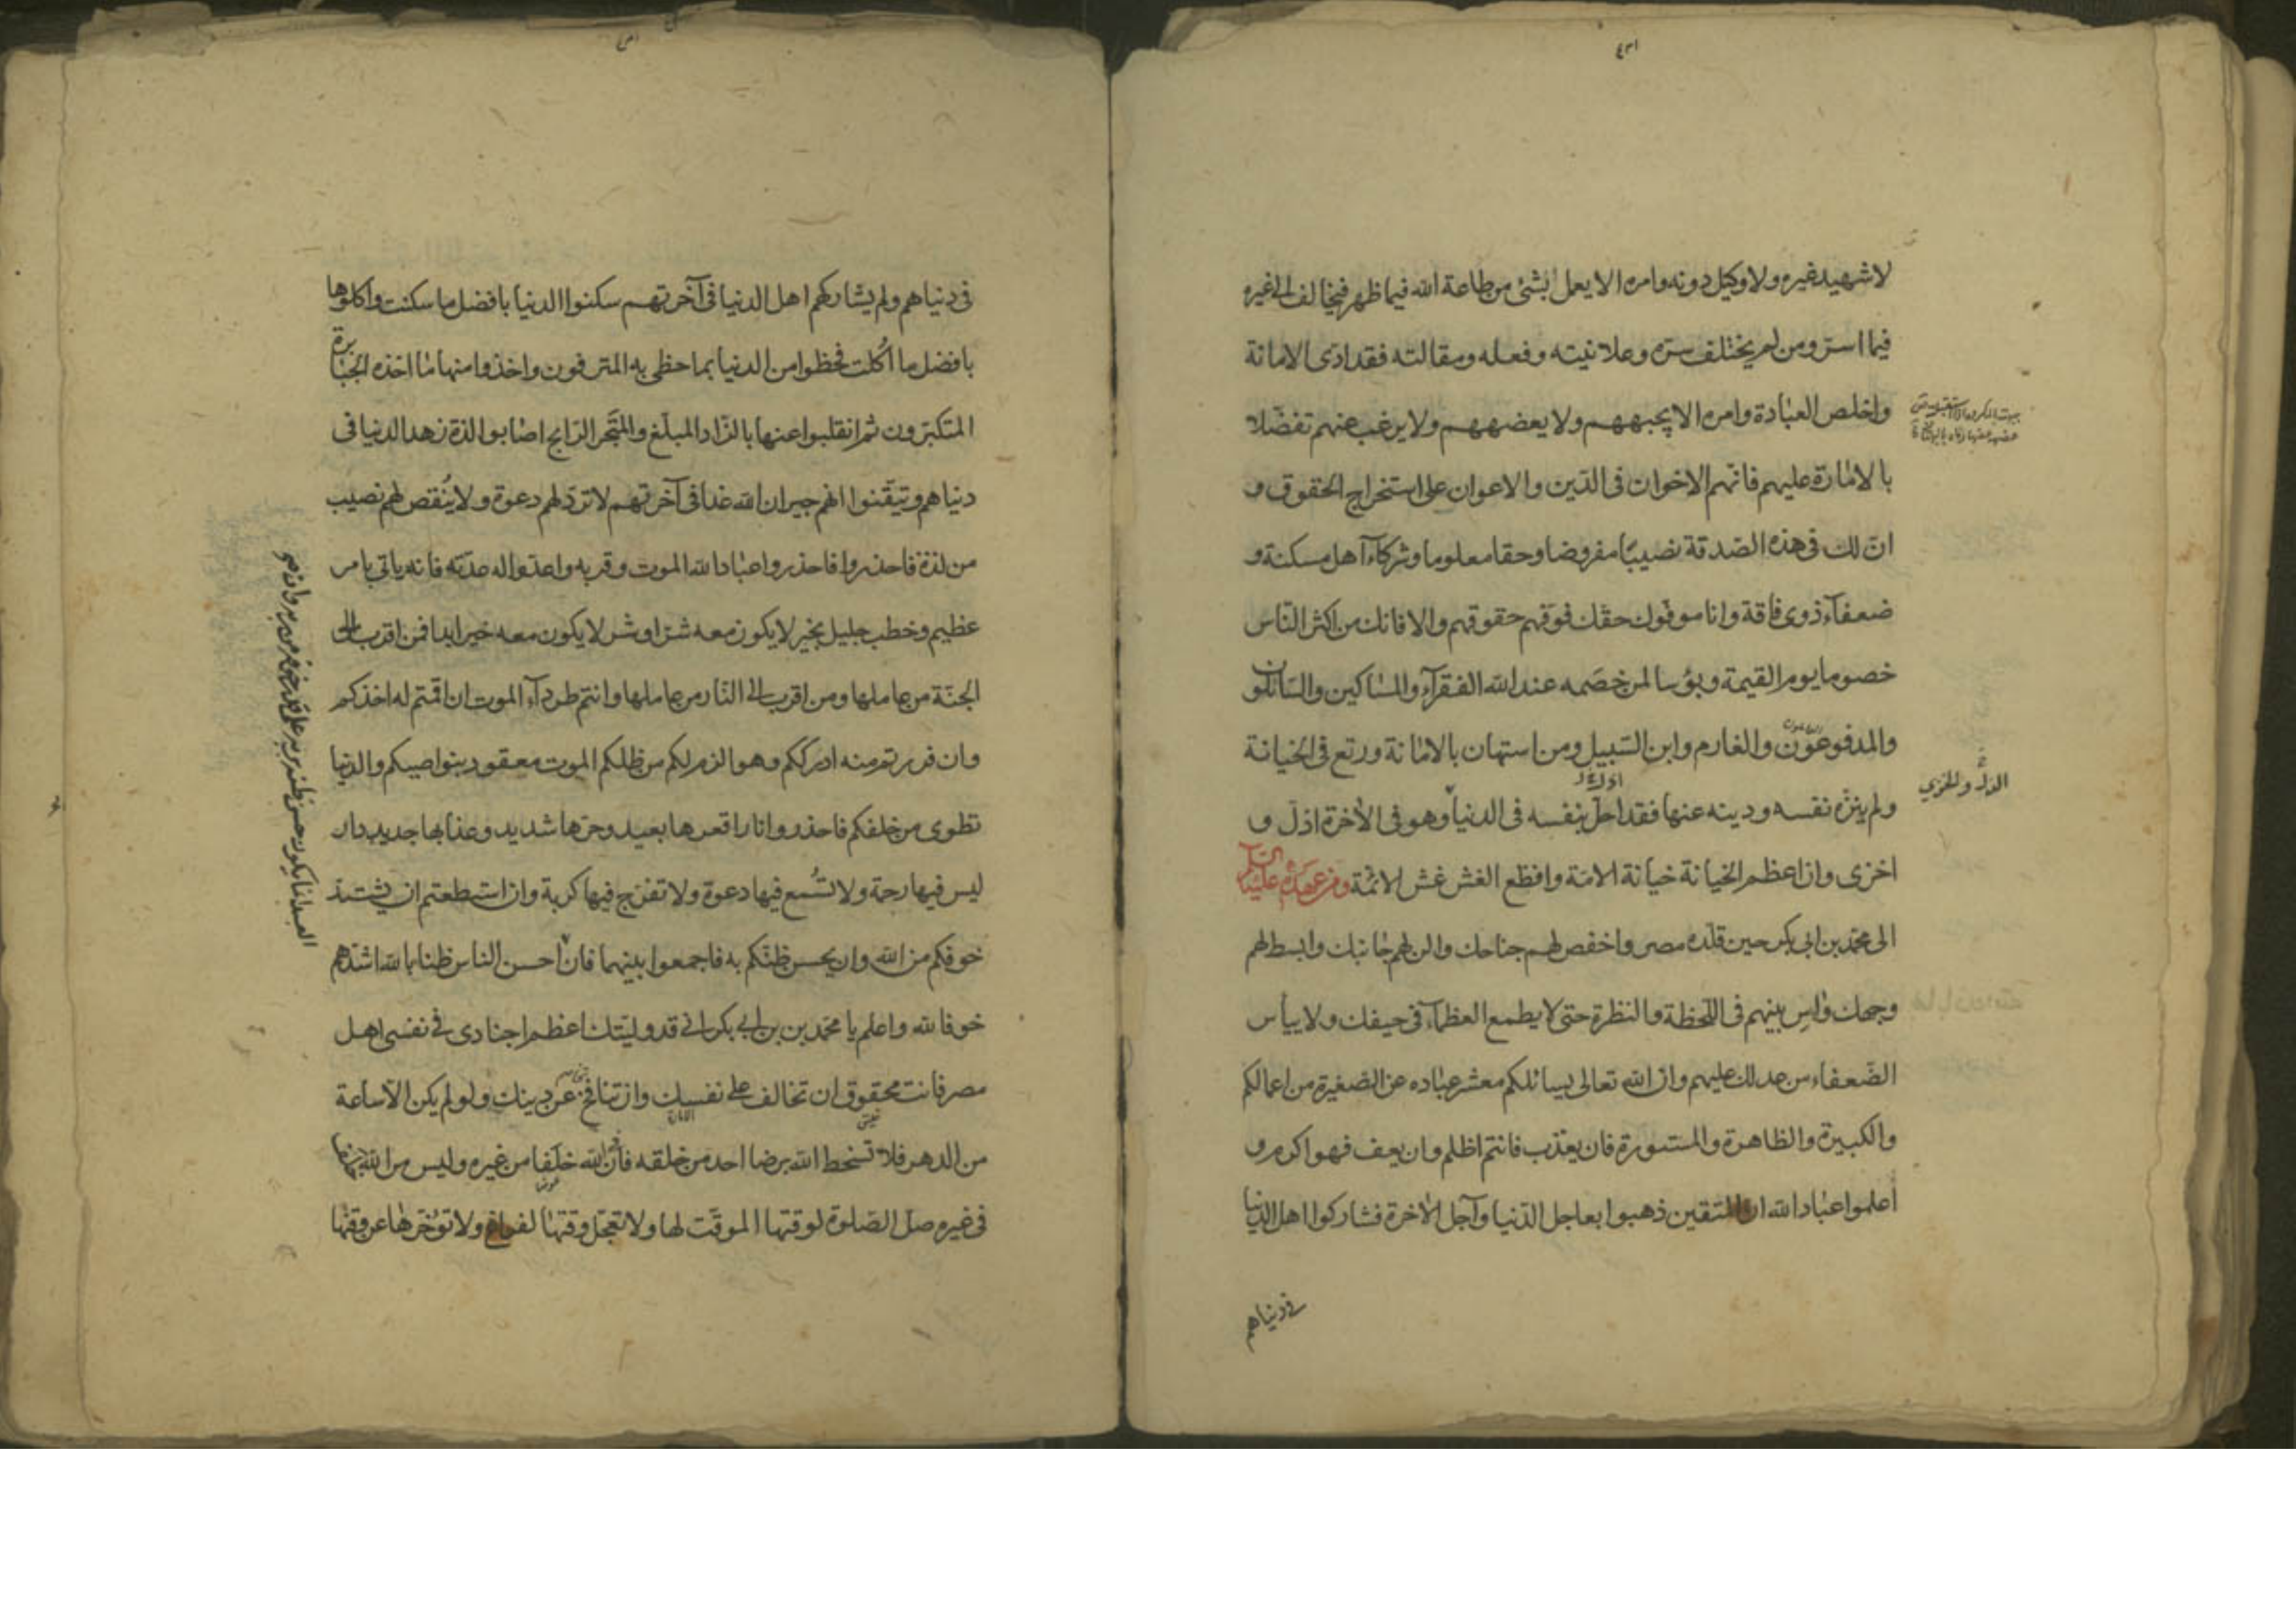 لا شهيد غيره ولا وكيل دونه وامره الا يعمل بشئ من طاعة الله فيما ظهر فيخالف الى غيره
فيما اسر ومن لم يختلف سره وعلانيته وفعله ومقالته فقد ادى الامانة
واخلص العبادة وامره الا يجبههم ولا يعضههم ولا يرغب عنهم تفضلا
بالامارة عليهم فانهم الاخوان فى الدين والاعوان على استخراج الحقوق و
ان لك فى هذه الصدقة نصيبا مفروضا وحقا معلوما وشركاء اهل مسكنة و
ضعفاء ذوى فاقة وانا موفوك حقك فوفهم حقوقهم والا فانك من اكثر الناس
خصوما يوم القيمة وبؤسا لمن خصمه عند الله الفقراء والمساكين والسائلون
والمدفوعون والغارم وابن السبيل ومن استهان بالامانة ورتع فى الخيانة
ولم ينزه نفسه ودينه عنها فقد احل بنفسه فى الدنيا وهو فى الآخرة اذل و
الذل والخزي
اخزى وان اعظم الخيانة خيانة الامة وافظع الغش غش الائمة ومن عهد له عليه السلام
الى محمد بن ابى بكر حين قلده مصر واخفض لهم جناحك والن لهم جانبك وابسط لهم
وجهك وآس بينهم فى اللحظة والنظرة حتى لا يطمع العظماء فى حيفك ولا ييأس
الضعفاء من عدلك عليهم وان الله تعالى يسائلكم معشر عباده عن الصغيرة من اعمالكم
والكبيرة والظاهرة والمستورة فان يعذب فانتم اظلم وان يعف فهو اكرم و
اعلموا عباد الله ان المتقين ذهبوا بعاجل الدنيا وآجل الآخرة فشاركوا اهل الدنيا
فى دنياهم
فى دنياهم ولم يشاركهم اهل الدنيا فى آخرتهم سكنوا الدنيا بافضل ما سكنت واكلوها
بافضل ما اكلت فحظوا من الدنيا بما حظى به المترفون واخذوا منها ما اخذه الجبابرة
المتكبرون ثم انقلبوا عنها بالزاد المبلغ والمتجر الرابح اصابوا لذة زهد الدنيا فى
دنياهم وتيقنوا انهم جيران الله غدا فى آخرتهم لا ترد لهم دعوة ولا ينقص لهم نصيب
من لذة فاحذروا فاحذروا عباد الله الموت وقربه واعدوا له عدته فانه ياتى بامر
عظيم وخطب جليل بخير لا يكون معه شر او شر لا يكون معه خير ابدا فمن اقرب الى
الجنة من عاملها ومن اقرب الى النار من عاملها وانتم طرداء الموت ان اقمتم له اخذكم
وان فررتم منه ادرككم وهو الزم لكم من ظلكم الموت معقود بنواصيكم والدنيا
تطوى من خلفكم فاحذروا نارا قعرها بعيد وحرها شديد وعذابها جديد دار
ليس فيها رحمة ولا تسمع فيها دعوة ولا تفرج فيها كربة وان استطعتم ان يشتد
خوفكم من الله وان يحسن ظنكم به فاجمعوا بينهما فان احسن الناس ظنا بالله اشدهم
خوفا لله واعلم يا محمد بن بن ابى بكر انى قد وليتك اعظم اجنادى فى نفسى اهل
مصر فانت محقوق ان تخالف على نفسك وان تنافح عن دينك ولو لم يكن الا ساعة
من الدهر فلا تسخط الله برضا احد من خلقه فان لله خلفا من غيره وليس من الله
فى غيره صل الصلوة لوقتها الموقت لها ولا تعجل وقتها لفراغ ولا تؤخرها عن وقتها